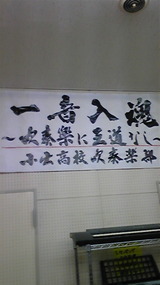 一音入魂
〜吹奏楽に王道なし〜
小出高校吹奏楽部